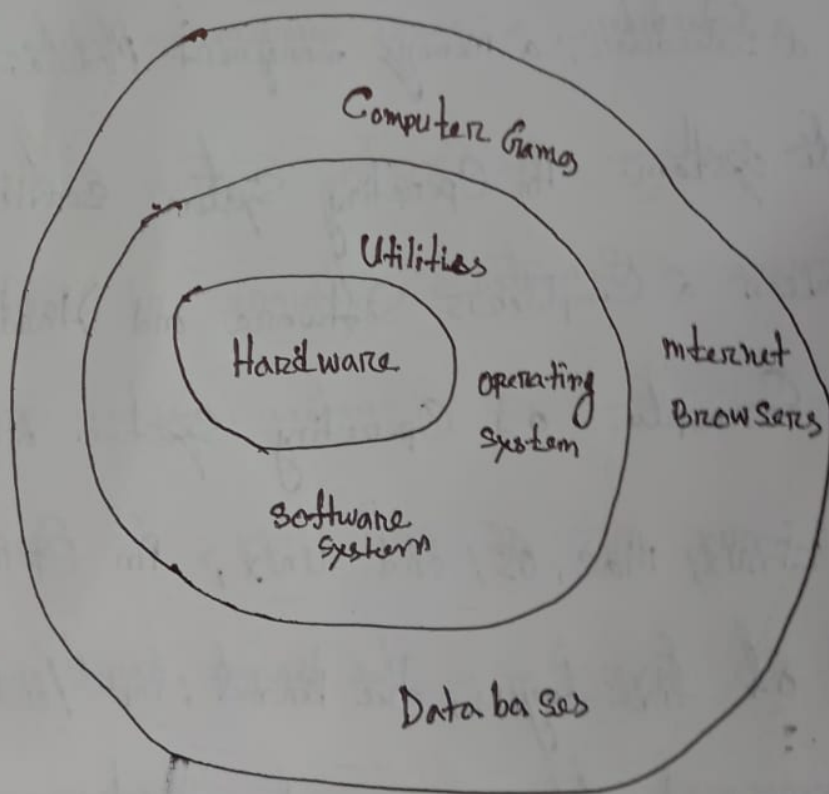 Computer Games
Utilities
Hardware
operating
system
Internet
Browsers
software
system
Databases